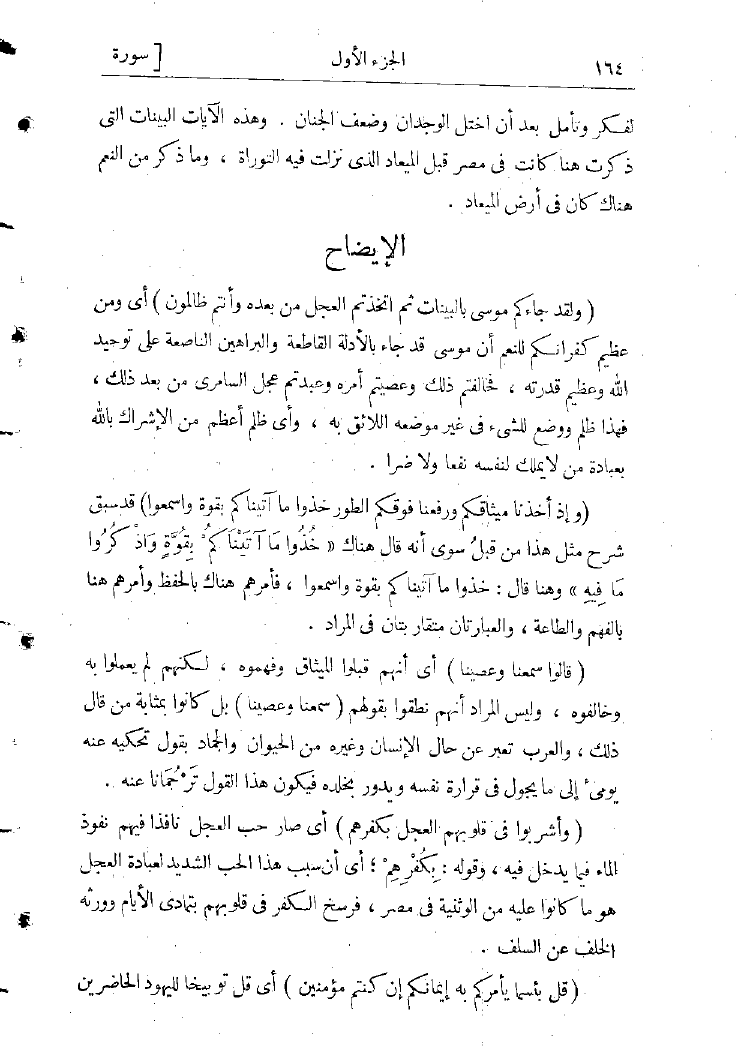 ١٦٤ الجزء الأول [ سورة
لفكر وتأمل بعد أن اختل الوجدان وضعف الجنان . وهذه الآيات البينات التى
ذكرت هنا كانت فى مصر قبل الميعاد الذى نزلت فيه التوراة ، وما ذكر من النعم
هناك كان فى أرض الميعاد .
الإيضاح
( ولقد جاءكم موسى بالبينات ثم اتخذتم العجل من بعده وأنتم ظالمون ) أى ومن
عظيم كفرانكم للنعم أن موسى قد جاء بالأدلة القاطعة والبراهين الناصعة على توحيد
الله وعظيم قدرته ، فخالفتم ذلك وعصيتم أمره وعبدتم عجل السامرى من بعد ذلك ،
فهذا ظلم ووضع للشىء فى غير موضعه اللائق به ، وأى ظلم أعظم من الإشراك بالله
بعبادة من لايملك لنفسه نفعا ولا ضرا .
(وإذ أخذنا ميثاقكم ورفعنا فوقكم الطور خذوا ما آتيناكم بقوة واسمعوا) قدسبق
شرح مثل هذا من قبلُ سوى أنه قال هناك « خُذُوا مَا آتَيْنَاكُمْ بِقُوَّةٍ وَاذْ كُرُوا
مَا فِيهِ » وهنا قال : خذوا ما آتيناكم بقوة واسمعوا ، فأمرهم هناك بالحفظ وأمرهم هنا
بالفهم والطاعة ، والعبارتان متقاربتان فى المراد .
( قالوا سمعنا وعصينا ) أى أنهم قبلوا الميثاق وفهموه ، لكنهم لم يعملوا به
وخالفوه ، وليس المراد أنهم نطقوا بقولهم ( سمعنا وعصينا ) بل كانوا بمثابة من قال
ذلك ، والعرب تعبر عن حال الإنسان وغيره من الحيوان والجماد بقول تحكيه عنه
يومىء إلى ما يجول فى قرارة نفسه ويدور بخلده فيكون هذا القول تَرْجُمَانا عنه .
( وأشربوا فى قلوبهم العجل بكفرهم ) أى صار حب العجل نافذا فيهم نفوذ
الماء فيما يدخل فيه ، وقوله : بِكُفْرِهِمْ ؛ أى أن سبب هذا الحب الشديد لعبادة العجل
هو ما كانوا عليه من الوثنية فى مصر ، فرسخ الكفر فى قلوبهم بتمادى الأيام وورثه
الخلف عن السلف .
( قل بئسما يأمركم به إيمانكم إن كنتم مؤمنين ) أى قل توبيخا لليهود الحاضرين